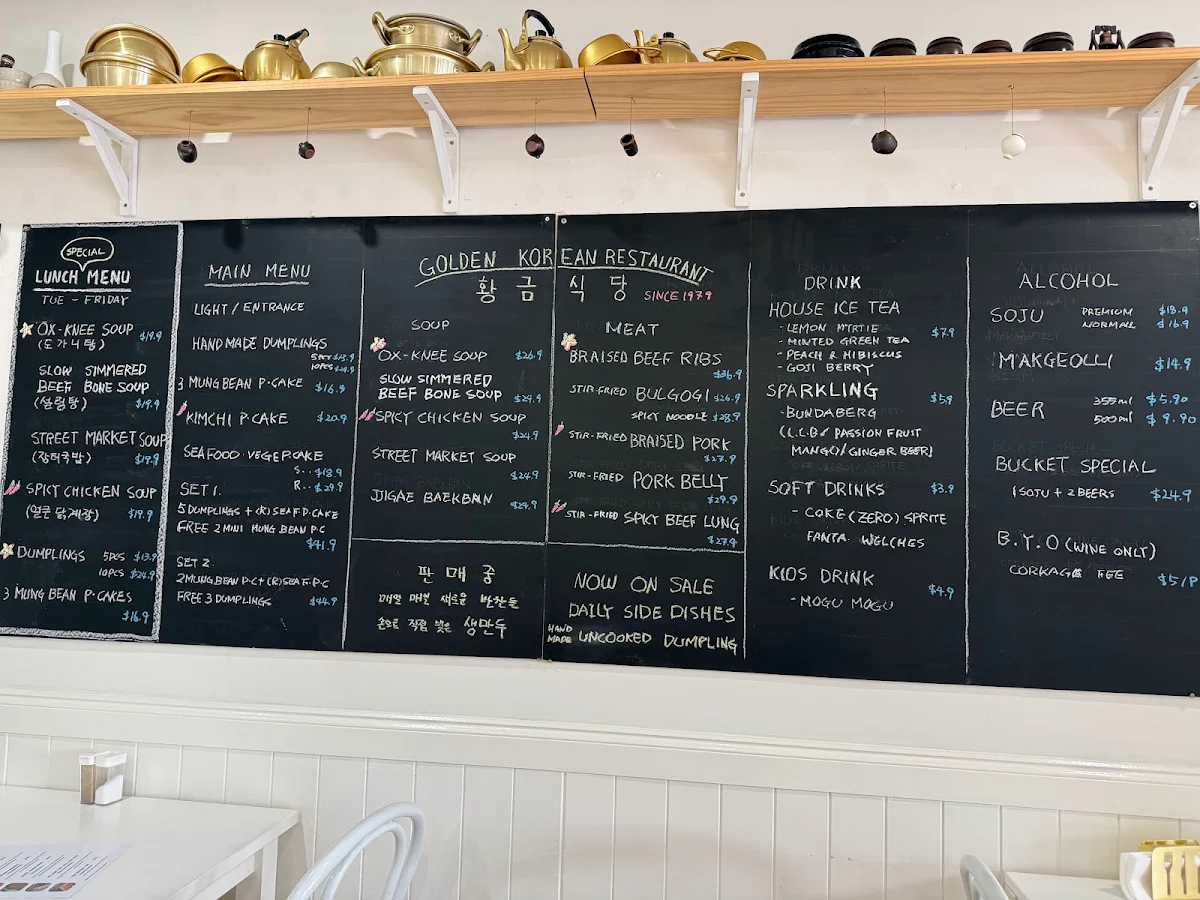 SPECIAL
LUNCH MENU
TUE - FRIDAY
OX-KNEE SOUP $19.9
(도가니탕)
SLOW SIMMERED
BEEF BONE SOUP
(설렁탕) $19.9
STREET MARKET SOUP
(장터국밥) $19.9
SPICY CHICKEN SOUP
(얼큰 닭계장) $19.9
DUMPLINGS 5PCS $13.9
10PCS $24.9
3 MUNG BEAN P.CAKES
$16.9
MAIN MENU
LIGHT / ENTRANCE
HANDMADE DUMPLINGS
5PCS $13.9
10PCS $24.9
3 MUNG BEAN P.CAKE $16.9
KIMCHI P.CAKE $20.9
SEAFOOD. VEGE P.CAKE
S.. $18.9
R.. $29.9
SET 1.
5 DUMPLINGS + (R) SEA F. P.CAKE
FREE 2 MINI MUNG BEAN P.C
$41.9
SET 2.
2 MUNG BEAN P.C + (R) SEA F. P.C
FREE 3 DUMPLINGS $44.9
GOLDEN KOREAN RESTAURANT
황금 식당 SINCE 1979
SOUP
OX-KNEE SOUP $26.9
SLOW SIMMERED
BEEF BONE SOUP $24.9
SPICY CHICKEN SOUP
$24.9
STREET MARKET SOUP
$24.9
JJIGAE BAEKBAN $24.9
판매중
매일 매번 새로운 반찬들
손으로 직접 빚은 생만두
MEAT
BRAISED BEEF RIBS
$36.9
STIR-FRIED BULGOGI $26.9
SPICY NOODLE $28.9
STIR-FRIED BRAISED PORK
$27.9
STIR-FRIED PORK BELLY
$29.9
STIR-FRIED SPICY BEEF LUNG
$27.9
NOW ON SALE
DAILY SIDE DISHES
HAND MADE UNCOOKED DUMPLING
DRINK
HOUSE ICE TEA
- LEMON MYRTIE $7.9
- MINTED GREEN TEA
- PEACH & HIBISCUS
- GOJI BERRY
SPARKLING $5.9
- BUNDABERG
(L.L.B / PASSION FRUIT
MANGO / GINGER BEER)
SOFT DRINKS $3.9
- COKE (ZERO) SPRITE
FANTA WELCHES
KIDS DRINK $4.9
- MOGU MOGU
ALCOHOL
SOJU PREMIUM $18.9
NORMAL $16.9
MAKGEOLLI $14.9
BEER 355ml $5.90
500ml $9.90
BUCKET SPECIAL
1 SOJU + 2 BEERS $24.9
B.Y.O (WINE ONLY)
CORKAGE FEE $5/P